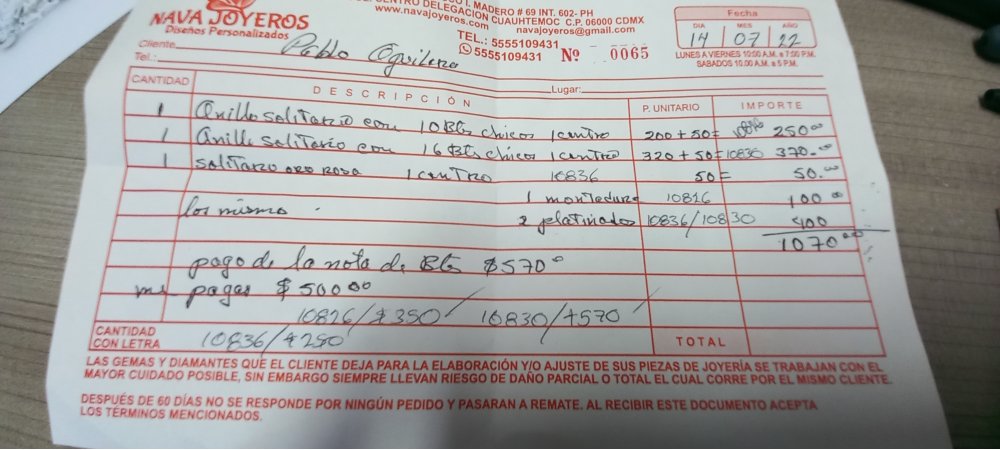 NAVA JOYEROS
Diseños Personalizados
I. MADERO # 69 INT. 602- PH
CENTRO DELEGACION CUAUHTEMOC C.P. 06000 CDMX
www.navajoyeros.com
navajoyeros@gmail.com
TEL.: 5555109431
5555109431
Nº 0065
Fecha
DIA MES AÑO
14 07 22
LUNES A VIERNES 10:00 A.M. a 7:00 P.M.
SABADOS 10:00 A.M. a 5 P.M.
Cliente Pablo Aguilera
Tel.: Lugar:
CANTIDAD DESCRIPCIÓN P. UNITARIO IMPORTE
1 Anillo solitario con 10 Bts chicos 1 centro 200 + 50 = 250.00
1 Anillo solitario con 16 Bts chicos 1 centro 320 + 50 = 10830 370.00
1 solitario oro rosa 1 centro 10836 50 = 50.00
1 montadura 10816 100
los mismo 2 platinados 10836/10830 400
1070.00
pago de la nota de Bts $570
pagar $500.00
10826/$350 10830/$570
10836/$250
CANTIDAD CON LETRA
TOTAL
LAS GEMAS Y DIAMANTES QUE EL CLIENTE DEJA PARA LA ELABORACIÓN Y/O AJUSTE DE SUS PIEZAS DE JOYERÍA SE TRABAJAN CON EL
MAYOR CUIDADO POSIBLE, SIN EMBARGO SIEMPRE LLEVAN RIESGO DE DAÑO PARCIAL O TOTAL EL CUAL CORRE POR EL MISMO CLIENTE.
DESPUÉS DE 60 DÍAS NO SE RESPONDE POR NINGÚN PEDIDO Y PASARAN A REMATE. AL RECIBIR ESTE DOCUMENTO ACEPTA
LOS TÉRMINOS MENCIONADOS.